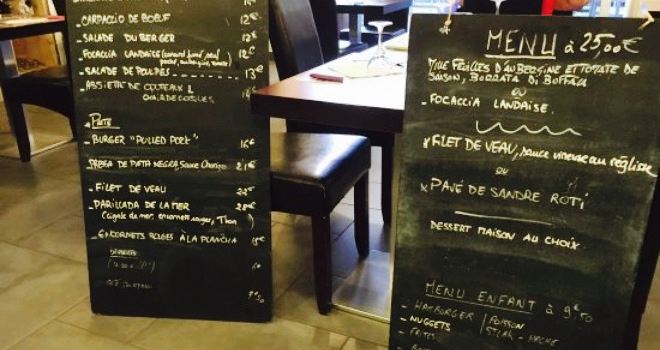 CARPACCIO DE BOEUF 12€
SALADE DU BERGER 12€
FOCACCIA LANDAISE 12€
SALADE DE POULPES 13€
ASSIETTE DE COUTEAUX &
Plats
BURGER "PULLED PORK" 16€
PRESA DE PATA NEGRA, Sauce Chorizo 21€
FILET DE VEAU 22€
PARILLADA DE LA MER 28€
ENCORNETS ROUGES À LA PLANCHA
MENU à 25,00€
MILLE FEUILLES D'AUBERGINE ET TOMATE DE
SAISON, BURRATA DI BUFFALA
OU
FOCACCIA LANDAISE.
x FILET DE VEAU, sauce vinaigre au réglisse
OU
x PAVÉ DE SANDRE ROTI
DESSERT MAISON AU CHOIX
MENU ENFANT à 9€50
- HAMBURGER / POISSON
- NUGGETS / STEAK-HACHÉ
- FRITES